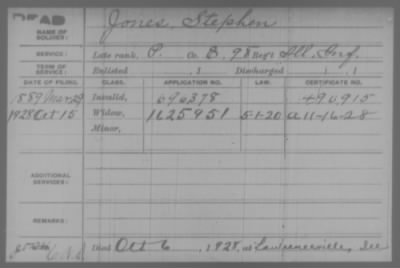 DEAD
NAME OF SOLDIER: Jones, Stephen
SERVICE: Late rank, P. Co. B, 98 Reg't Ill. Inf.
TERM OF SERVICE: Enlisted , 1 Discharged , 1
DATE OF FILING. CLASS. APPLICATION NO. LAW. CERTIFICATE NO.
1889 Mar 29 Invalid, 696378 490,915
1928 Oct 15 Widow, 1625951 5-1-20 a 11-16-28
Minor,
ADDITIONAL SERVICES:
REMARKS:
Died Oct 6, 1928, at Lawrenceville, Ill